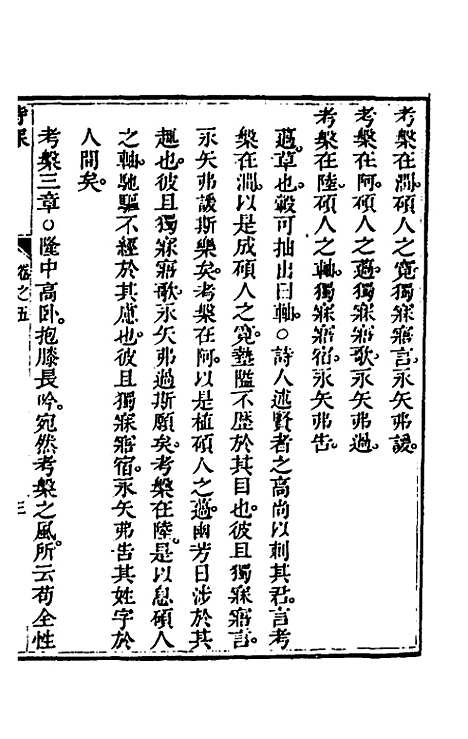 考槃在澗。碩人之寬。獨寐寤言。永矢弗諼。
考槃在阿。碩人之薖。獨寐寤歌。永矢弗過。
考槃在陸。碩人之軸。獨寐寤宿。永矢弗告。
薖。草也。轂可抽出曰軸。○詩人述賢者之高尚以刺其君。言考
槃在澗。以是成碩人之寬。墊隘不歷於其目也。彼且獨寐寤言。
永矢弗諼斯樂矣。考槃在阿。以是植碩人之薖。幽芳日涉於其
趣也。彼且獨寐寤歌。永矢弗過斯願矣。考槃在陸。是以息碩人
之軸。馳驅不經於其慮也。彼且獨寐寤宿。永矢弗告其姓字於
人間矣。
考槃三章○隆中高卧。抱膝長吟。宛然考槃之風。所云苟全性
卷之五
三